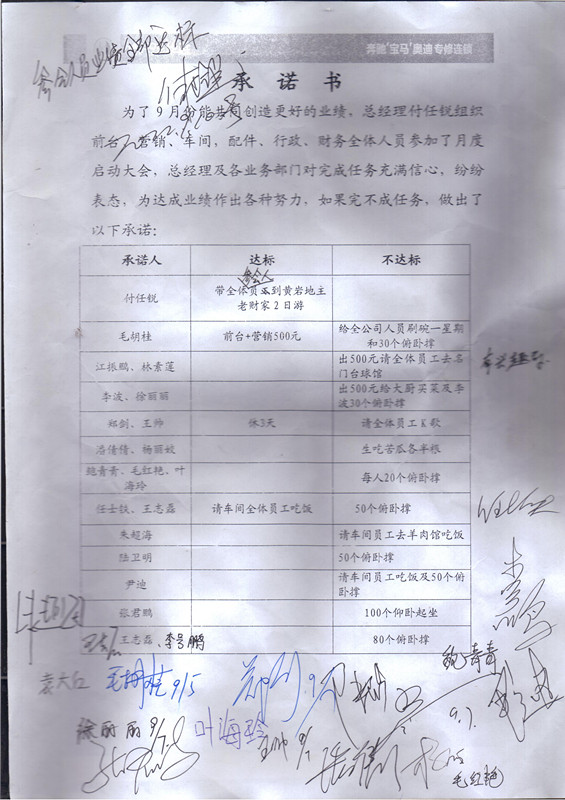 奔驰'宝马'奥迪专修连锁
参会人员业绩全部达标
承 诺 书
为了9月份能共同创造更好的业绩，总经理付任锐组织
前台、营销、车间，配件、行政、财务全体人员参加了月度
启动大会，总经理及各业务部门对完成任务充满信心，纷纷
表态，为达成业绩作出各种努力，如果完不成任务，做出了
以下承诺：
承诺人 达标 不达标
参会人
付任锐 带全体员工到黄岩地主
老财家2日游
毛胡桂 前台+营销500元 给全公司人员刷碗一星期
和30个俯卧撑
江振鹏、林素莲 出500元请全体员工去名
门台球馆
李波、徐丽丽 出500元给大厨买菜及李
波30个俯卧撑
郑剑、王帅 休3天 请全体员工K歌
潘倩倩、杨丽姣 生吃苦瓜各半根
鲍青青、毛红艳、叶
海玲 每人20个俯卧撑
任士铁、王志磊 请车间全体员工吃饭 50个俯卧撑
朱超海 请车间员工去羊肉馆吃饭
陆卫明 50个俯卧撑
尹迪 请车间员工吃饭及50个俯
卧撑
张君鹏 100个仰卧起坐
王志磊、李号鹏 80个俯卧撑
鲍青青
袁大红 毛胡桂 9/5 郑剑 9/5
9.7.
徐丽丽 9/7 叶海玲 王帅 9/7
毛红艳